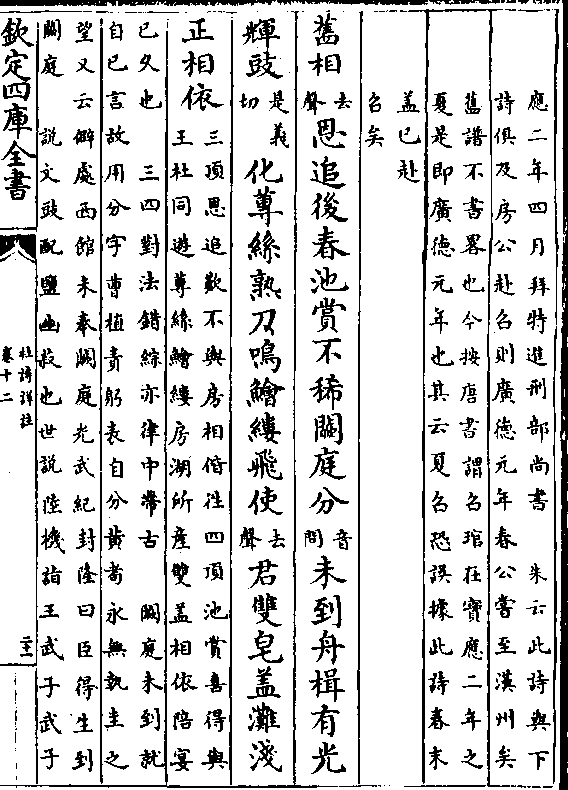 應二年四月拜特進刑部尚書　朱云此詩與下
詩俱及房公赴召則廣德元年春公嘗至漢州矣
舊譜不書畧也今按唐書謂召琯在寶應二年之
夏是即廣德元年也其云夏召恐誤據此詩春末
蓋已赴
召矣
舊相去聲恩追後春池賞不稀闕庭分音問未到舟楫有光
輝豉是義切化蓴絲熟刀鳴鱠縷飛使去聲君雙皂蓋灘淺
正相依三頂恩追歎不與房相偕往四頂池賞喜得與
王杜同遊蓴絲鱠縷房湖所産雙蓋相依陪宴
已久也　三四對法錯綜亦律中帶古　闕庭未到就
自已言故用分字曹植責躬表自分黄耉永無執圭之
望又云僻處西館未奉闕庭光武紀封隆曰臣得生到
闕庭　説文豉配鹽幽菽也世説陸機詣王武子武子
欽定四庫全書
杜詩詳註
卷十二
二十一